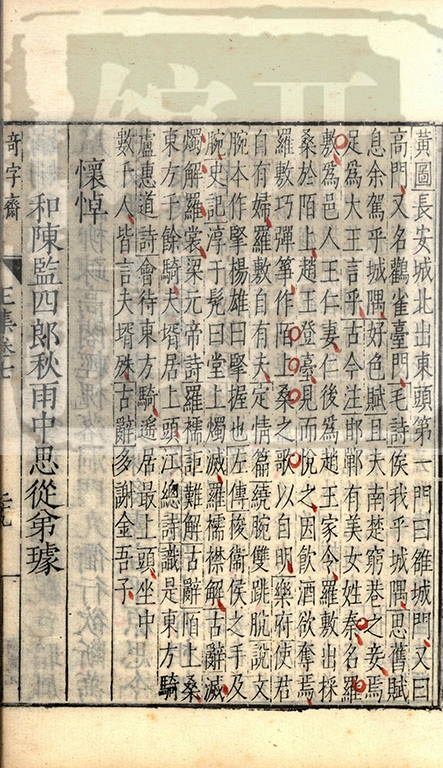 黃圖長安城北出東頭第一門曰雒城門又曰
高門又名鸛雀臺門毛詩俟我乎城隅思舊賦
息余駕乎城隅好色賦且夫南楚窮巷之妾焉
足爲大王言乎古今注邯鄲有美女姓秦名羅
敷爲邑人王仁妻仁後爲趙王家令羅敷出採
桑於陌上趙王登臺見而悅之因飮酒欲奪焉
羅敷巧彈箏作陌上桑之歌以自明樂府使君
自有婦羅敷自有夫定情篇繞腕雙跳脫說文
腕本作掔揚雄曰掔握也左傳捘衞侯之手及
腕史記淳于髡曰堂上燭滅羅襦襟解古辭滅
燭解羅裳梁元帝詩羅襦詎難解古辭陌上桑
東方千餘騎夫壻居上頭江總詩識是東方騎
盧惠道詩會待東方騎遙居最上頭坐中
數千人皆言夫壻殊古辭多謝金吾子
懷悼
和陳監四郎秋雨中思從弟璩
奇字齋
王集卷七